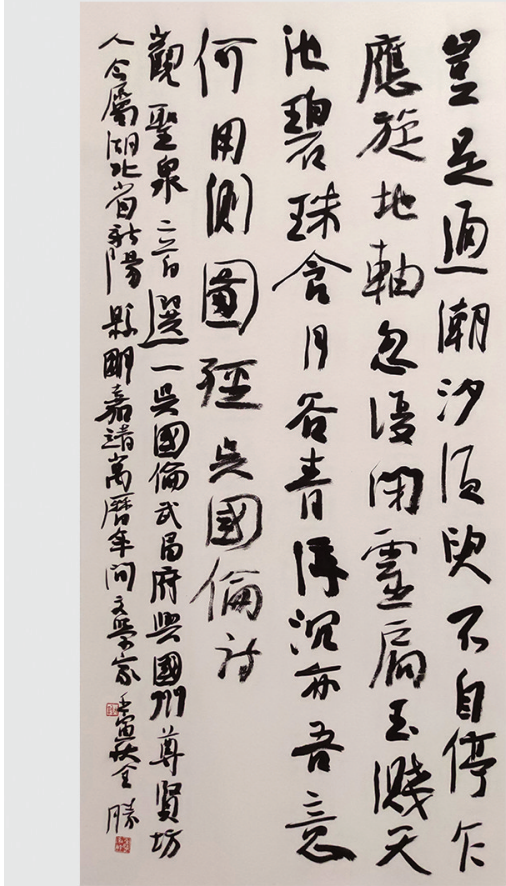 豈是通潮汐須臾不自停乍
應旋地軸忽復閉靈扃玉濺天
池碧珠含月谷青浮沉亦吾意
何用測圖經吳國倫詩
觀聖泉二首選一吳國倫武昌府興國州尊賢坊
人今屬湖北省新陽縣明嘉靖萬曆年間文學家壬寅秋勝